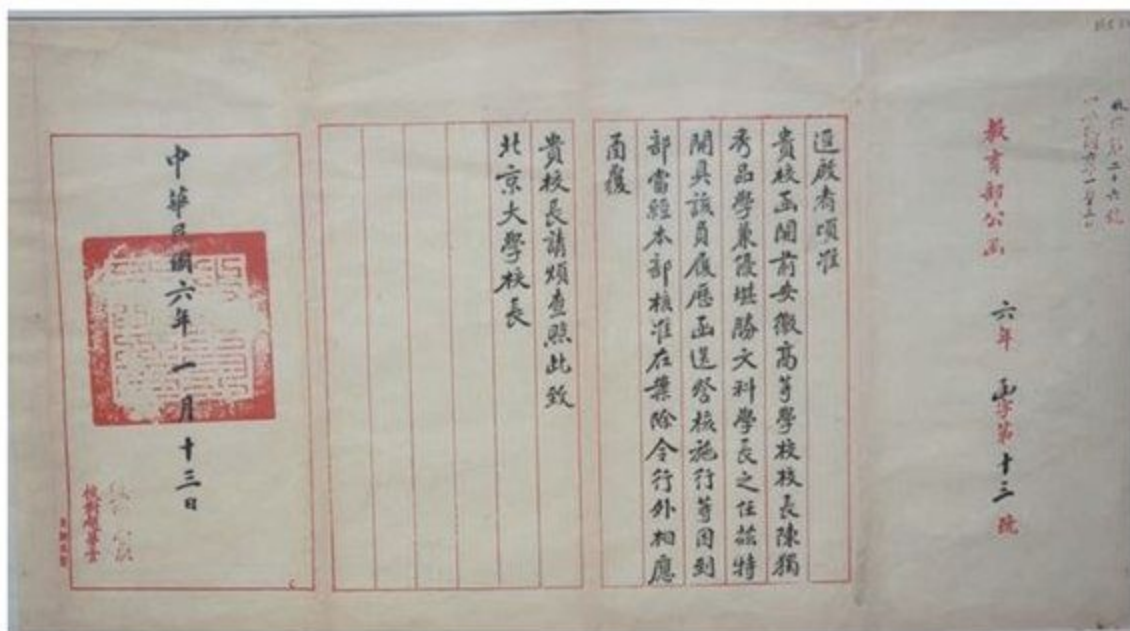 教育部公函 六年 函字第十三號
逕啟者頃准
貴校函開前安徽高等學校校長陳獨
秀品學兼優堪勝文科學長之任茲特
開具該員履歷函送詧核施行等因到
部當經本部核准在案除令行外相應
函復
貴校長請煩查照此致
北京大學校長
中華民國六年一月十三日